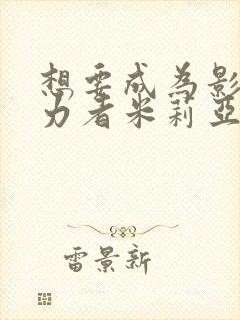 想要成为影
力者米莉亚
雷景新